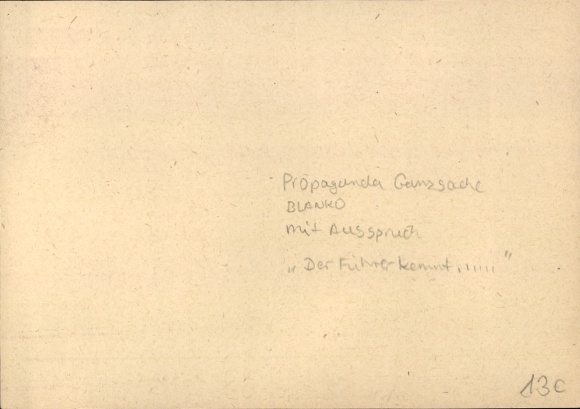 Propaganda Ganzsache
BLANKO
mit Ausspruch
„Der Führer kennt......"
13c